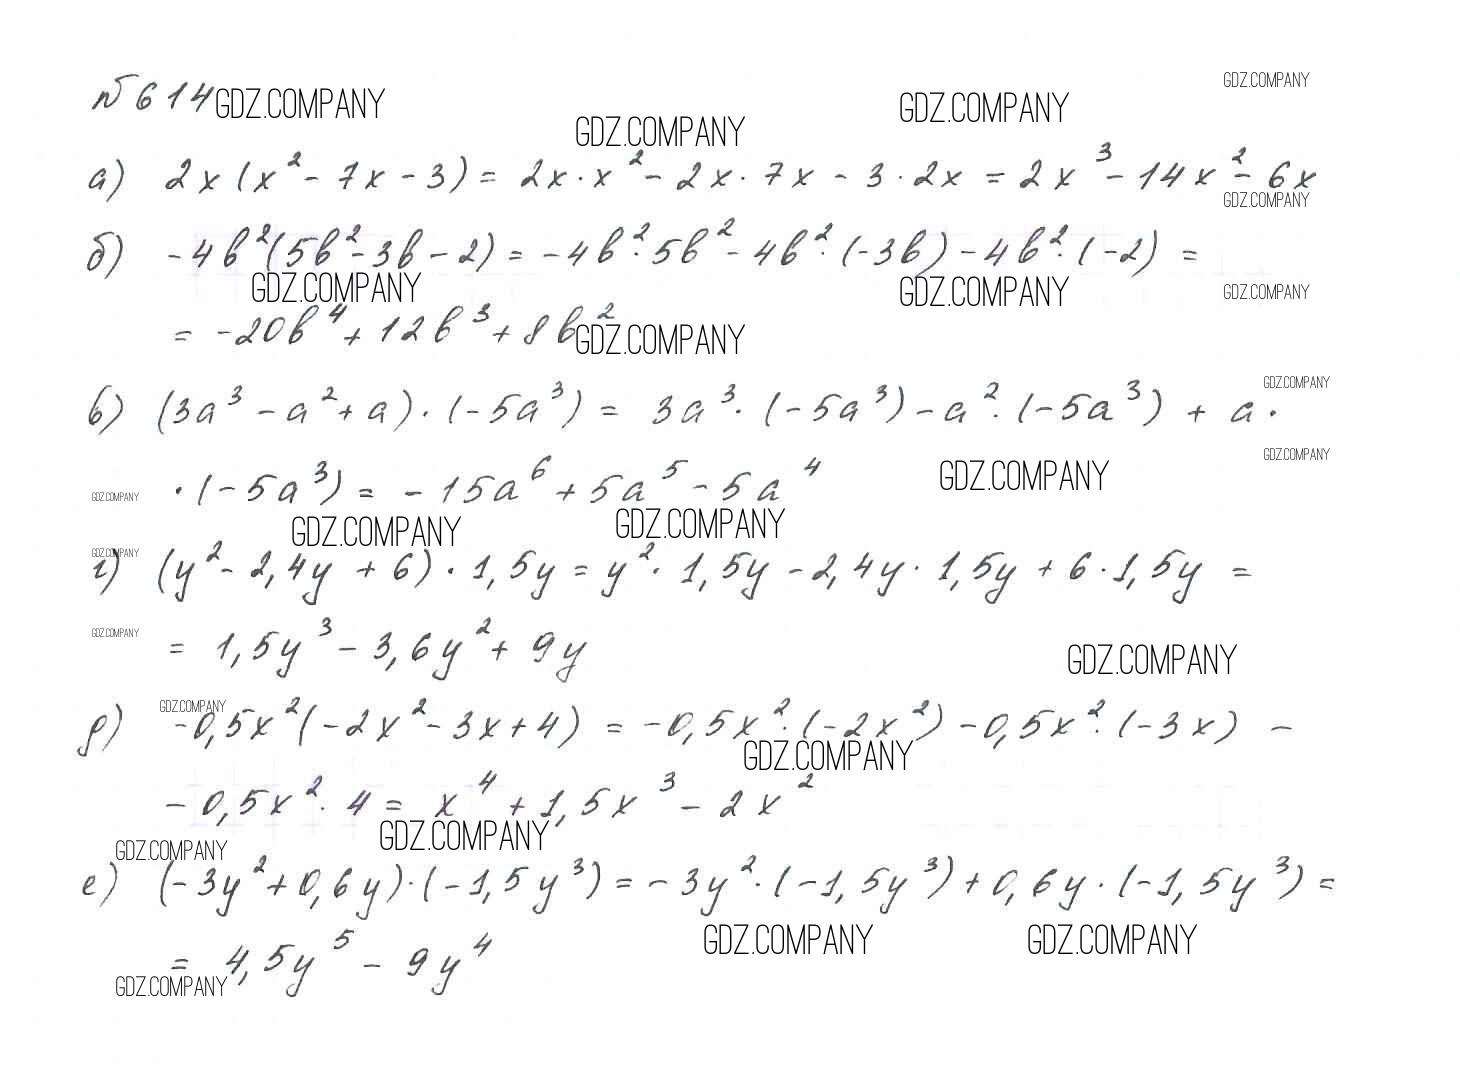 № 614 GDZ.COMPANY GDZ.COMPANY GDZ.COMPANY GDZ.COMPANY
а) 2x(x² - 7x - 3) = 2x · x² - 2x · 7x - 3 · 2x = 2x³ - 14x² - 6x
GDZ.COMPANY
б) -4b²(5b² - 3b - 2) = -4b² · 5b² - 4b² · (-3b) - 4b² · (-2) =
GDZ.COMPANY GDZ.COMPANY GDZ.COMPANY
= -20b⁴ + 12b³ + 8b² GDZ.COMPANY
GDZ.COMPANY
в) (3a³ - a² + a) · (-5a³) = 3a³ · (-5a³) - a² · (-5a³) + a ·
GDZ.COMPANY
GDZ.COMPANY · (-5a³) = -15a⁶ + 5a⁵ - 5a⁴ GDZ.COMPANY
GDZ.COMPANY GDZ.COMPANY
GDZ.COMPANY
г) (y² - 2,4y + 6) · 1,5y = y² · 1,5y - 2,4y · 1,5y + 6 · 1,5y =
GDZ.COMPANY = 1,5y³ - 3,6y² + 9y GDZ.COMPANY
GDZ.COMPANY
д) -0,5x²(-2x² - 3x + 4) = -0,5x² · (-2x²) - 0,5x² · (-3x) -
GDZ.COMPANY
- 0,5x² · 4 = x⁴ + 1,5x³ - 2x²
GDZ.COMPANY GDZ.COMPANY
е) (-3y² + 0,6y) · (-1,5y³) = -3y² · (-1,5y³) + 0,6y · (-1,5y³) =
GDZ.COMPANY GDZ.COMPANY
= 4,5y⁵ - 9y⁴
GDZ.COMPANY